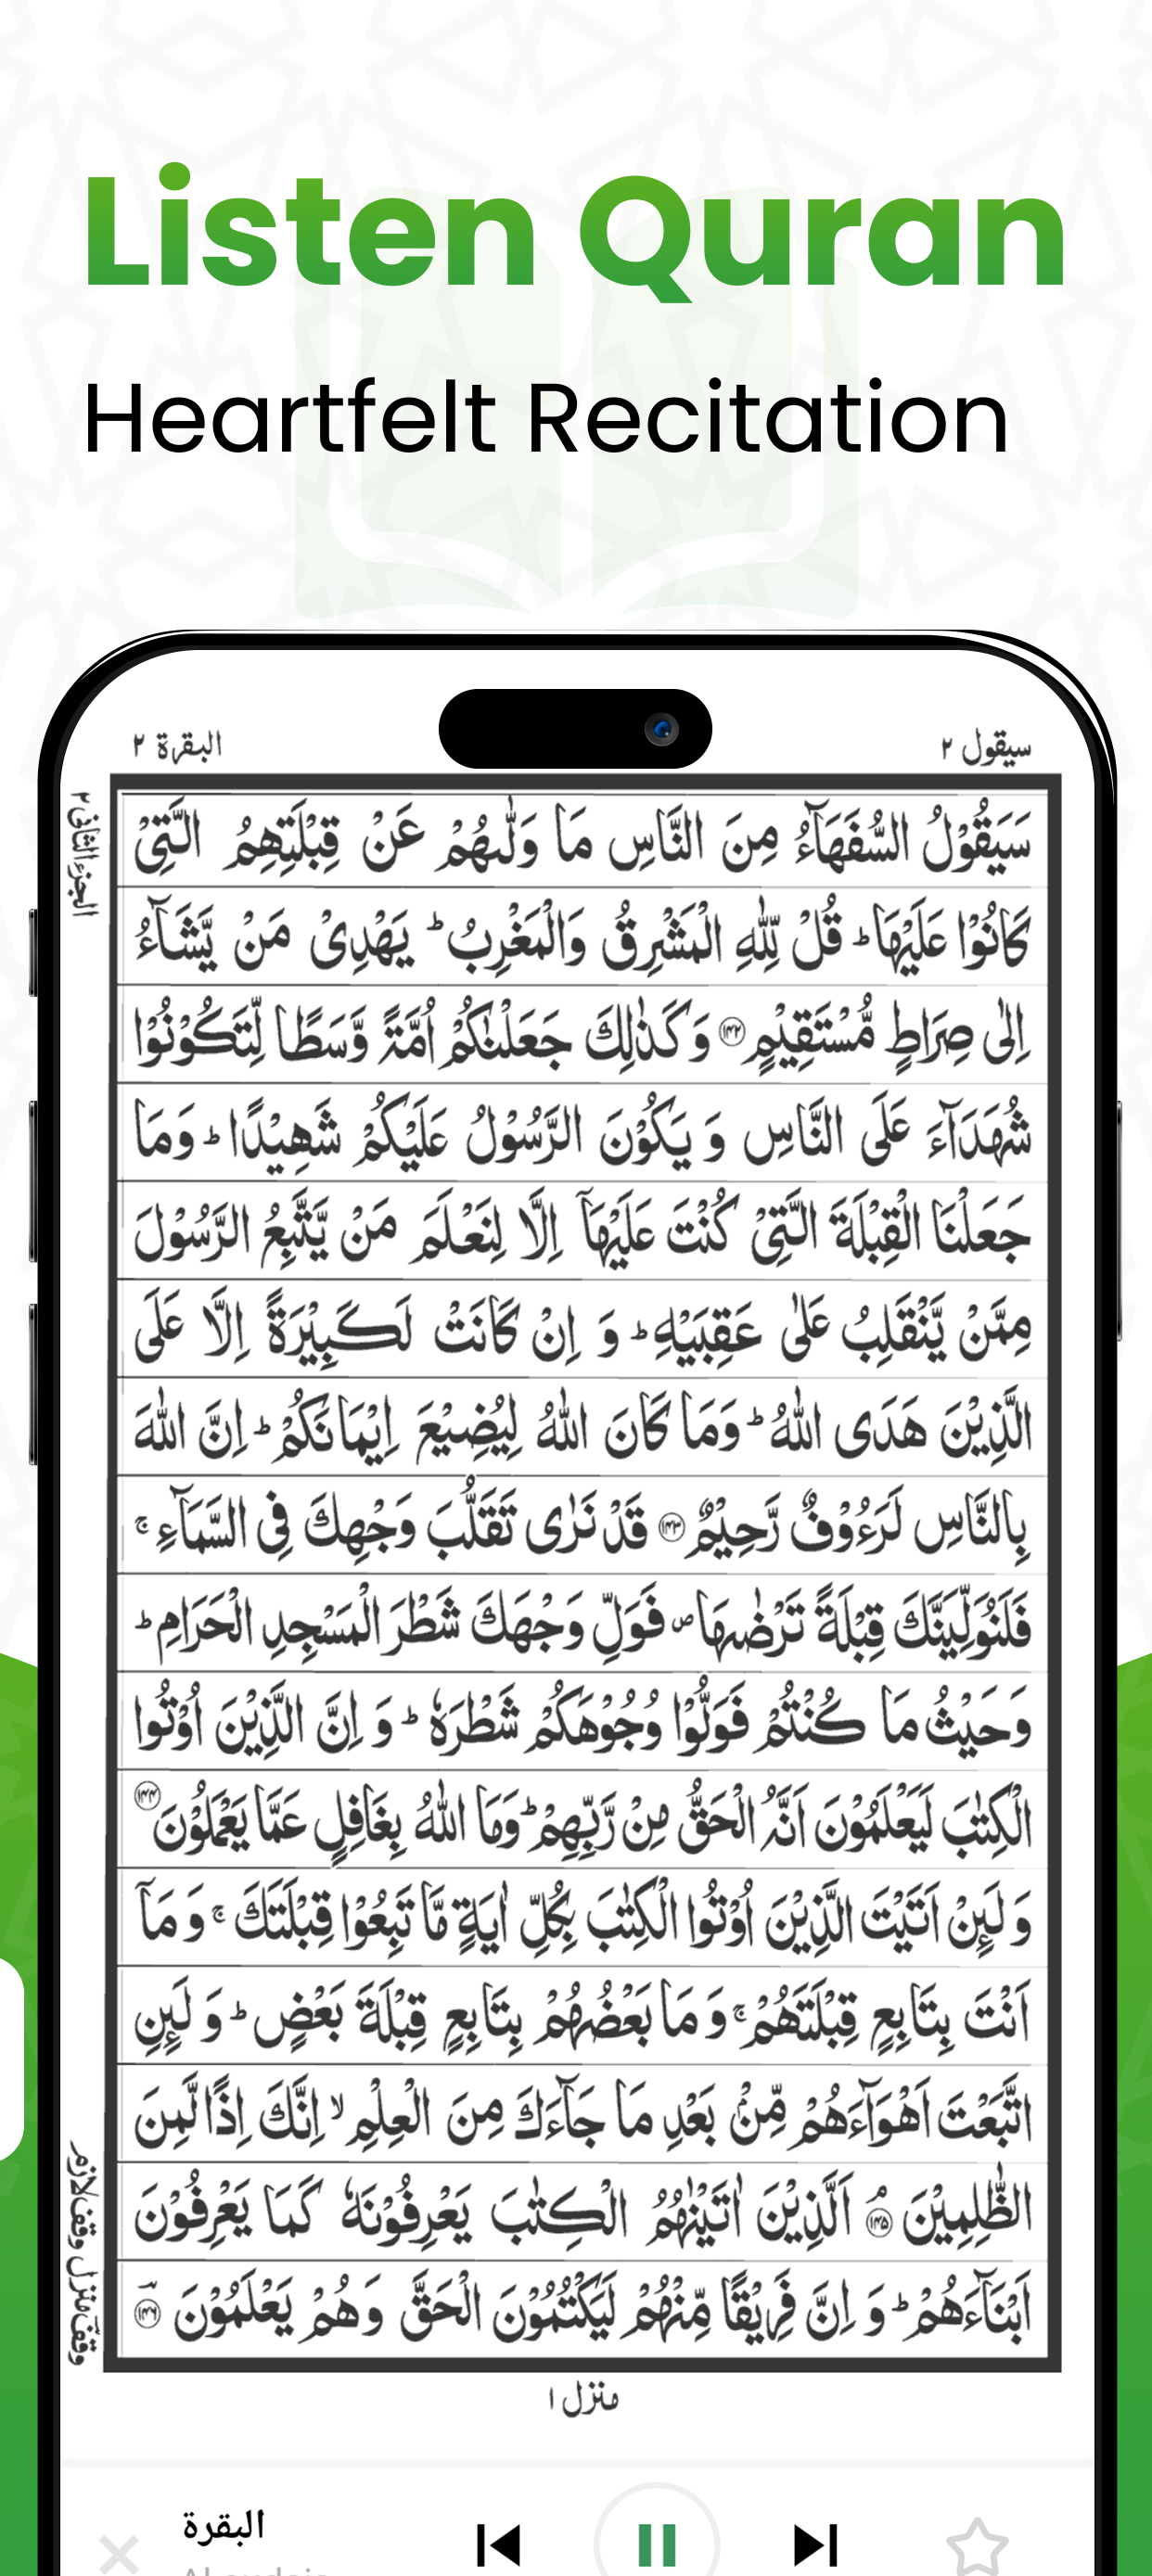 Listen Quran
Heartfelt Recitation
سيقول ٢
البقرة ٢
الجزء الثانی ٢
سَيَقُوْلُ السُّفَهَآءُ مِنَ النَّاسِ مَا وَلّٰىهُمْ عَنْ قِبْلَتِهِمُ الَّتِیْ
كَانُوْا عَلَيْهَا ؕ قُلْ لِّلّٰهِ الْمَشْرِقُ وَالْمَغْرِبُ ؕ يَهْدِیْ مَنْ يَّشَآءُ
اِلٰی صِرَاطٍ مُّسْتَقِيْمٍ ۝۱۴۲ وَ كَذٰلِكَ جَعَلْنٰكُمْ اُمَّةً وَّسَطًا لِّتَكُوْنُوْا
شُهَدَآءَ عَلَی النَّاسِ وَ يَكُوْنَ الرَّسُوْلُ عَلَيْكُمْ شَهِيْدًا ؕ وَمَا
جَعَلْنَا الْقِبْلَةَ الَّتِیْ كُنْتَ عَلَيْهَآ اِلَّا لِنَعْلَمَ مَنْ يَّتَّبِعُ الرَّسُوْلَ
مِمَّنْ يَّنْقَلِبُ عَلٰی عَقِبَيْهِ ؕ وَ اِنْ كَانَتْ لَكَبِيْرَةً اِلَّا عَلَی
الَّذِيْنَ هَدَی اللّٰهُ ؕ وَمَا كَانَ اللّٰهُ لِيُضِيْعَ اِيْمَانَكُمْ ؕ اِنَّ اللّٰهَ
بِالنَّاسِ لَرَءُوْفٌ رَّحِيْمٌ ۝۱۴۳ قَدْ نَرٰی تَقَلُّبَ وَجْهِكَ فِی السَّمَآءِ ۚ
فَلَنُوَلِّيَنَّكَ قِبْلَةً تَرْضٰىهَا ۪ فَوَلِّ وَجْهَكَ شَطْرَ الْمَسْجِدِ الْحَرَامِ ؕ
وَحَيْثُ مَا كُنْتُمْ فَوَلُّوْا وُجُوْهَكُمْ شَطْرَهٗ ؕ وَ اِنَّ الَّذِيْنَ اُوْتُوا
الْكِتٰبَ لَيَعْلَمُوْنَ اَنَّهُ الْحَقُّ مِنْ رَّبِّهِمْ ؕ وَمَا اللّٰهُ بِغَافِلٍ عَمَّا يَعْمَلُوْنَ ۝۱۴۴
وَ لَئِنْ اَتَيْتَ الَّذِيْنَ اُوْتُوا الْكِتٰبَ بِكُلِّ اٰيَةٍ مَّا تَبِعُوْا قِبْلَتَكَ ۚ وَ مَآ
اَنْتَ بِتَابِعٍ قِبْلَتَهُمْ ۚ وَ مَا بَعْضُهُمْ بِتَابِعٍ قِبْلَةَ بَعْضٍ ؕ وَ لَئِنِ
اتَّبَعْتَ اَهْوَآءَهُمْ مِّنْۢ بَعْدِ مَا جَآءَكَ مِنَ الْعِلْمِ ۙ اِنَّكَ اِذًا لَّمِنَ
الظّٰلِمِيْنَ ۝۱۴۵ۘ اَلَّذِيْنَ اٰتَيْنٰهُمُ الْكِتٰبَ يَعْرِفُوْنَهٗ كَمَا يَعْرِفُوْنَ
اَبْنَآءَهُمْ ؕ وَ اِنَّ فَرِيْقًا مِّنْهُمْ لَيَكْتُمُوْنَ الْحَقَّ وَهُمْ يَعْلَمُوْنَ ۝۱۴۶
وقف منزل وقف لازم
منزل ١
البقرة